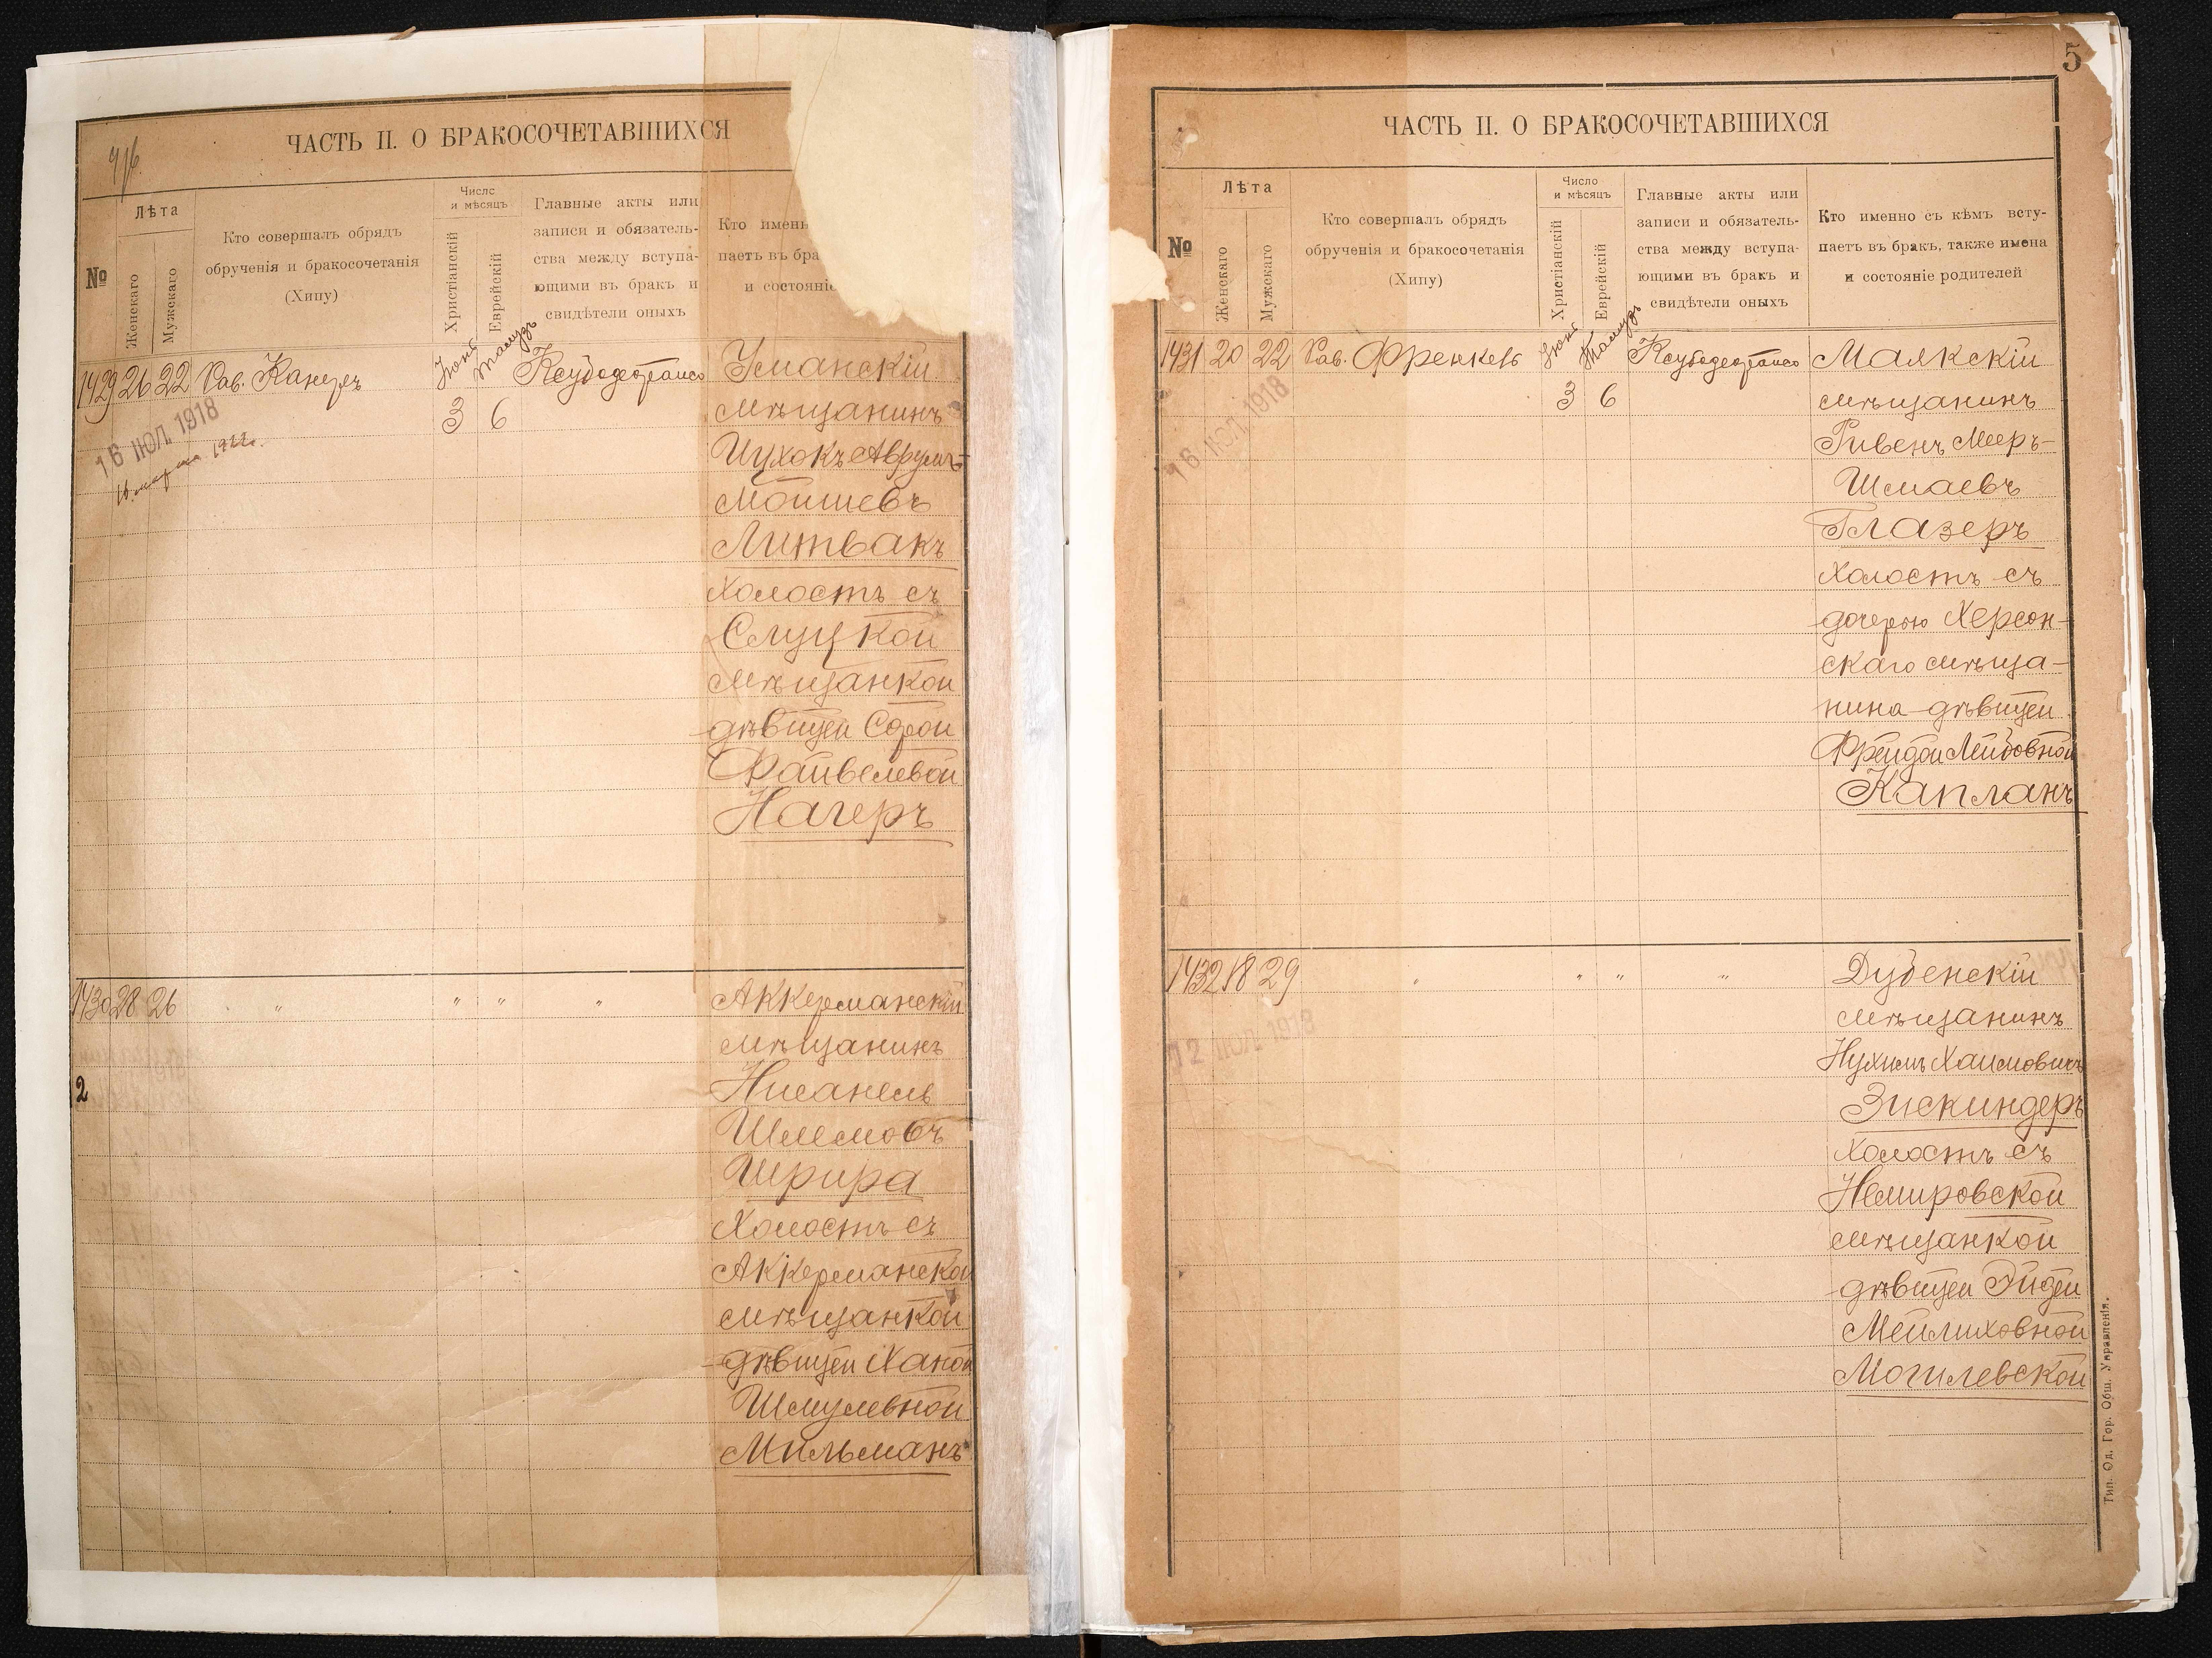 ЧАСТЬ II. О БРАКОСОЧЕТАВШИХСЯ
№
Лѣта
Женскаго
Мужскаго
Кто совершалъ обрядъ
обрученія и бракосочетанія
(Хипу)
Число
и мѣсяцъ
Христіанскій
Еврейскій
Главные акты или
записи и обязатель-
ства между вступа-
ющими въ бракъ и
свидѣтели оныхъ
Кто именн
паетъ въ бра
и состояніе
1429 26 22 Рав. Канеръ Іюнь Тамузъ
3 6
16 ІЮЛ. 1918
Уманскій
мѣщанинъ
Ицхокъ Аврумъ-
Мойшевъ
Литвакъ
холостъ съ
Слуцкой
мѣщанкой
дѣвицей Сорой
Файвелевой
Нагеръ
1430 28 26 " " " "
Аккерманскій
мѣщанинъ
Нисанель
Шлемовъ
Шрира
холостъ съ
Аккерманской
мѣщанкой
дѣвицей Ханой
Шмулевной
Мильманъ
2
5
ЧАСТЬ II. О БРАКОСОЧЕТАВШИХСЯ
№
Лѣта
Женскаго
Мужскаго
Кто совершалъ обрядъ
обрученія и бракосочетанія
(Хипу)
Число
и мѣсяцъ
Христіанскій
Еврейскій
Главные акты или
записи и обязатель-
ства между вступа-
ющими въ бракъ и
свидѣтели оныхъ
Кто именно съ кѣмъ всту-
паетъ въ бракъ, также имена
и состояніе родителей
1431 20 22 Рав. Френкель Іюнь Тамузъ
3 6
16 ІЮЛ. 1918
Маякскій
мѣщанинъ
Ривенъ Меер-
Шмаевъ
Глазеръ
холостъ съ
дочерью Херсон-
скаго мѣща-
нина дѣвицей
Фрейдой Лейбовной
Капланъ
1432 18 29 " " " "
12 ІЮЛ. 1918
Дубенскій
мѣщанинъ
Нухимъ Хаимовичъ
Зискиндеръ
холостъ съ
Немировской
мѣщанкой
дѣвицей Эйдей
Мейлиховной
Могилевской
Тип. Од. Гор. Общ. Управленія.